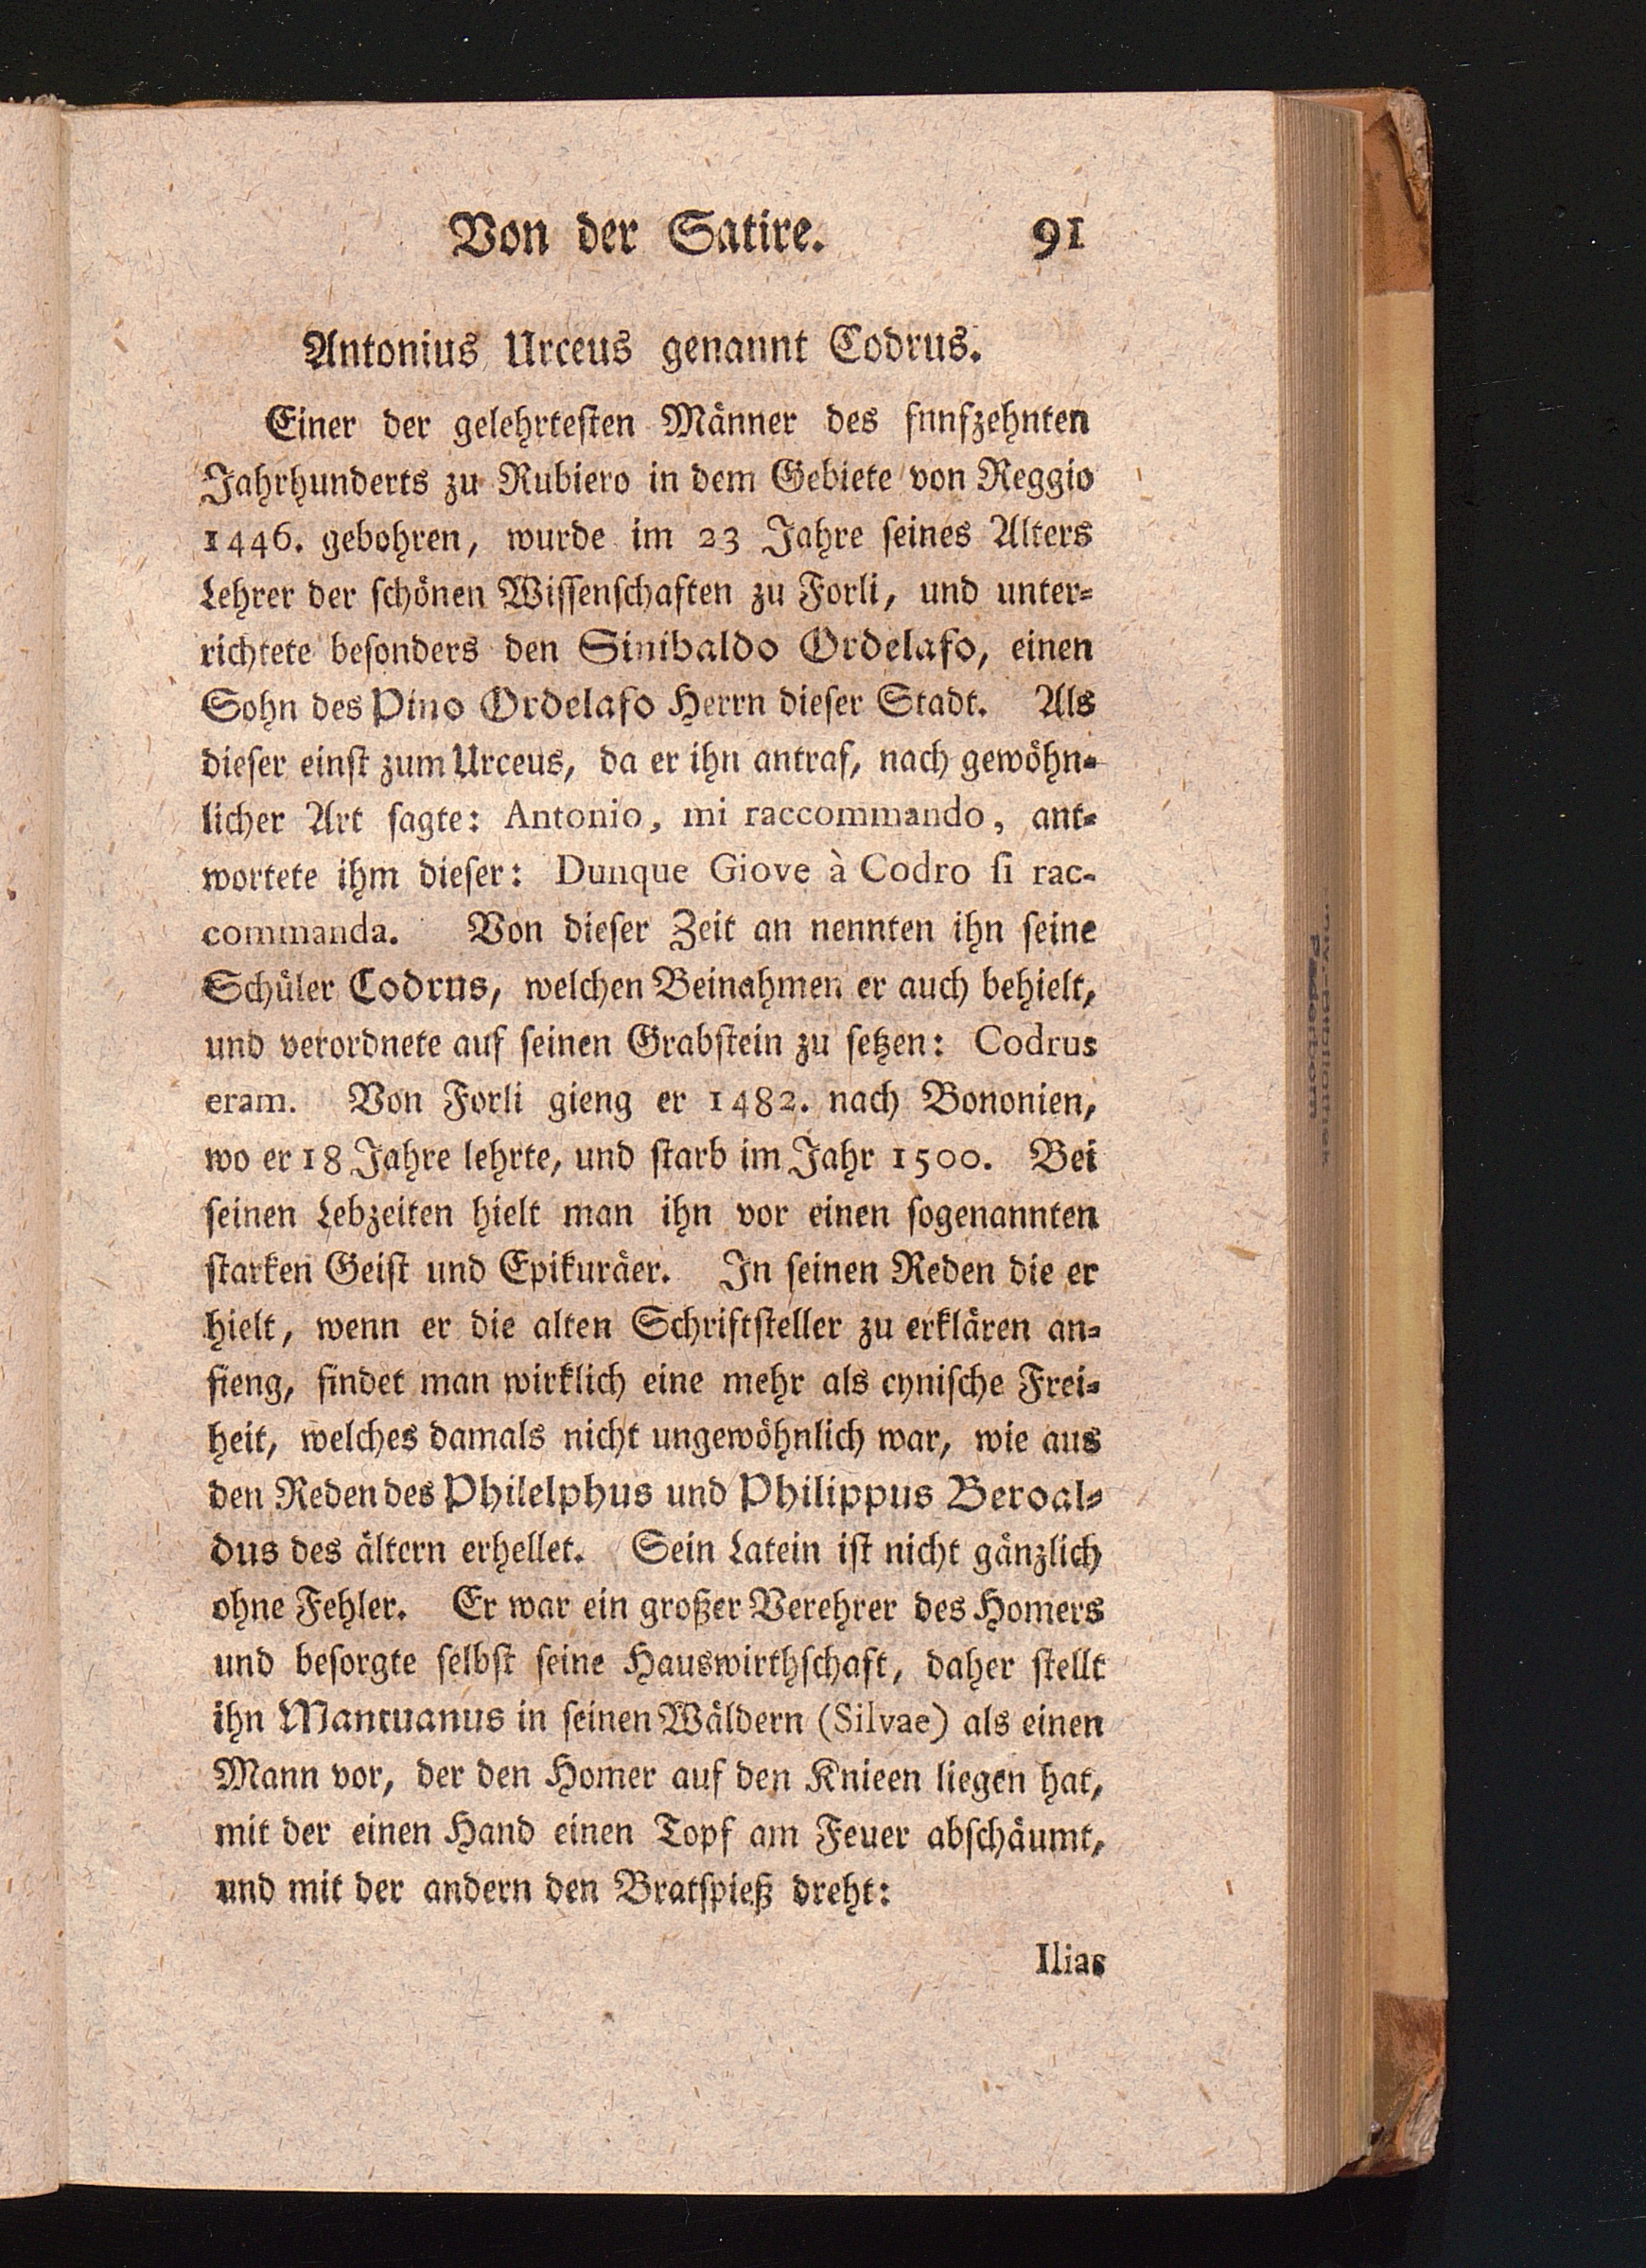 Von der Satire. 91
Antonius Urceus genannt Codrus.
Einer der gelehrteſten Männer des fnnfzehnten
Jahrhunderts zu Rubiero in dem Gebiete von Reggio
1446. gebohren, wurde im 23 Jahre ſeines Alters
Lehrer der ſchönen Wiſſenſchaften zu Forli, und unter⸗
richtete beſonders den Sinibaldo Ordelafo, einen
Sohn des Pino Ordelafo Herrn dieſer Stadt. Als
dieſer einſt zum Urceus, da er ihn antraf, nach gewöhn⸗
licher Art ſagte: Antonio, mi raccommando, ant⸗
wortete ihm dieſer: Dunque Giove à Codro ſi rac-
commanda. Von dieſer Zeit an nennten ihn ſeine
Schüler Codrus, welchen Beinahmen er auch behielt,
und verordnete auf ſeinen Grabſtein zu ſetzen: Codrus
eram. Von Forli gieng er 1482. nach Bononien,
wo er 18 Jahre lehrte, und ſtarb im Jahr 1500. Bei
ſeinen Lebzeiten hielt man ihn vor einen ſogenannten
ſtarken Geiſt und Epikuräer. In ſeinen Reden die er
hielt, wenn er die alten Schriftſteller zu erklären an⸗
fieng, findet man wirklich eine mehr als cyniſche Frei⸗
heit, welches damals nicht ungewöhnlich war, wie aus
den Reden des Philelphus und Philippus Beroal⸗
dus des ältern erhellet. Sein Latein iſt nicht gänzlich
ohne Fehler. Er war ein großer Verehrer des Homers
und beſorgte ſelbſt ſeine Hauswirthſchaft, daher ſtellt
ihn Mantuanus in ſeinen Wäldern (Silvae) als einen
Mann vor, der den Homer auf den Knieen liegen hat,
mit der einen Hand einen Topf am Feuer abſchäumt,
und mit der andern den Bratſpieß dreht:
Ilias